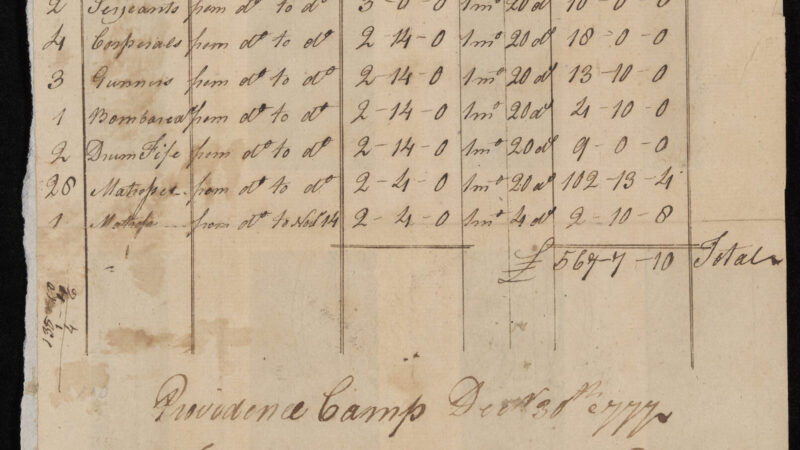 2 Serjeants from do to do 3-0-0 1mo 20d 10-0-0
4 Corperals from do to do 2-14-0 1mo 20d 18-0-0
3 Gunners from do to do 2-14-0 1mo 20d 13-10-0
1 from do to do 2-14-0 1mo 20d 4-10-0
2 Drum Fife from do to do 2-14-0 1mo 20d 9-0-0
28 Matrosses from do to do 2-4-0 1mo 20d 102-13-4
1 Matross from do to Novr 14 2-4-0 1mo 4d 2-10-8
£ 567-7-10 Total
Providence Camp Decr 30th 1777